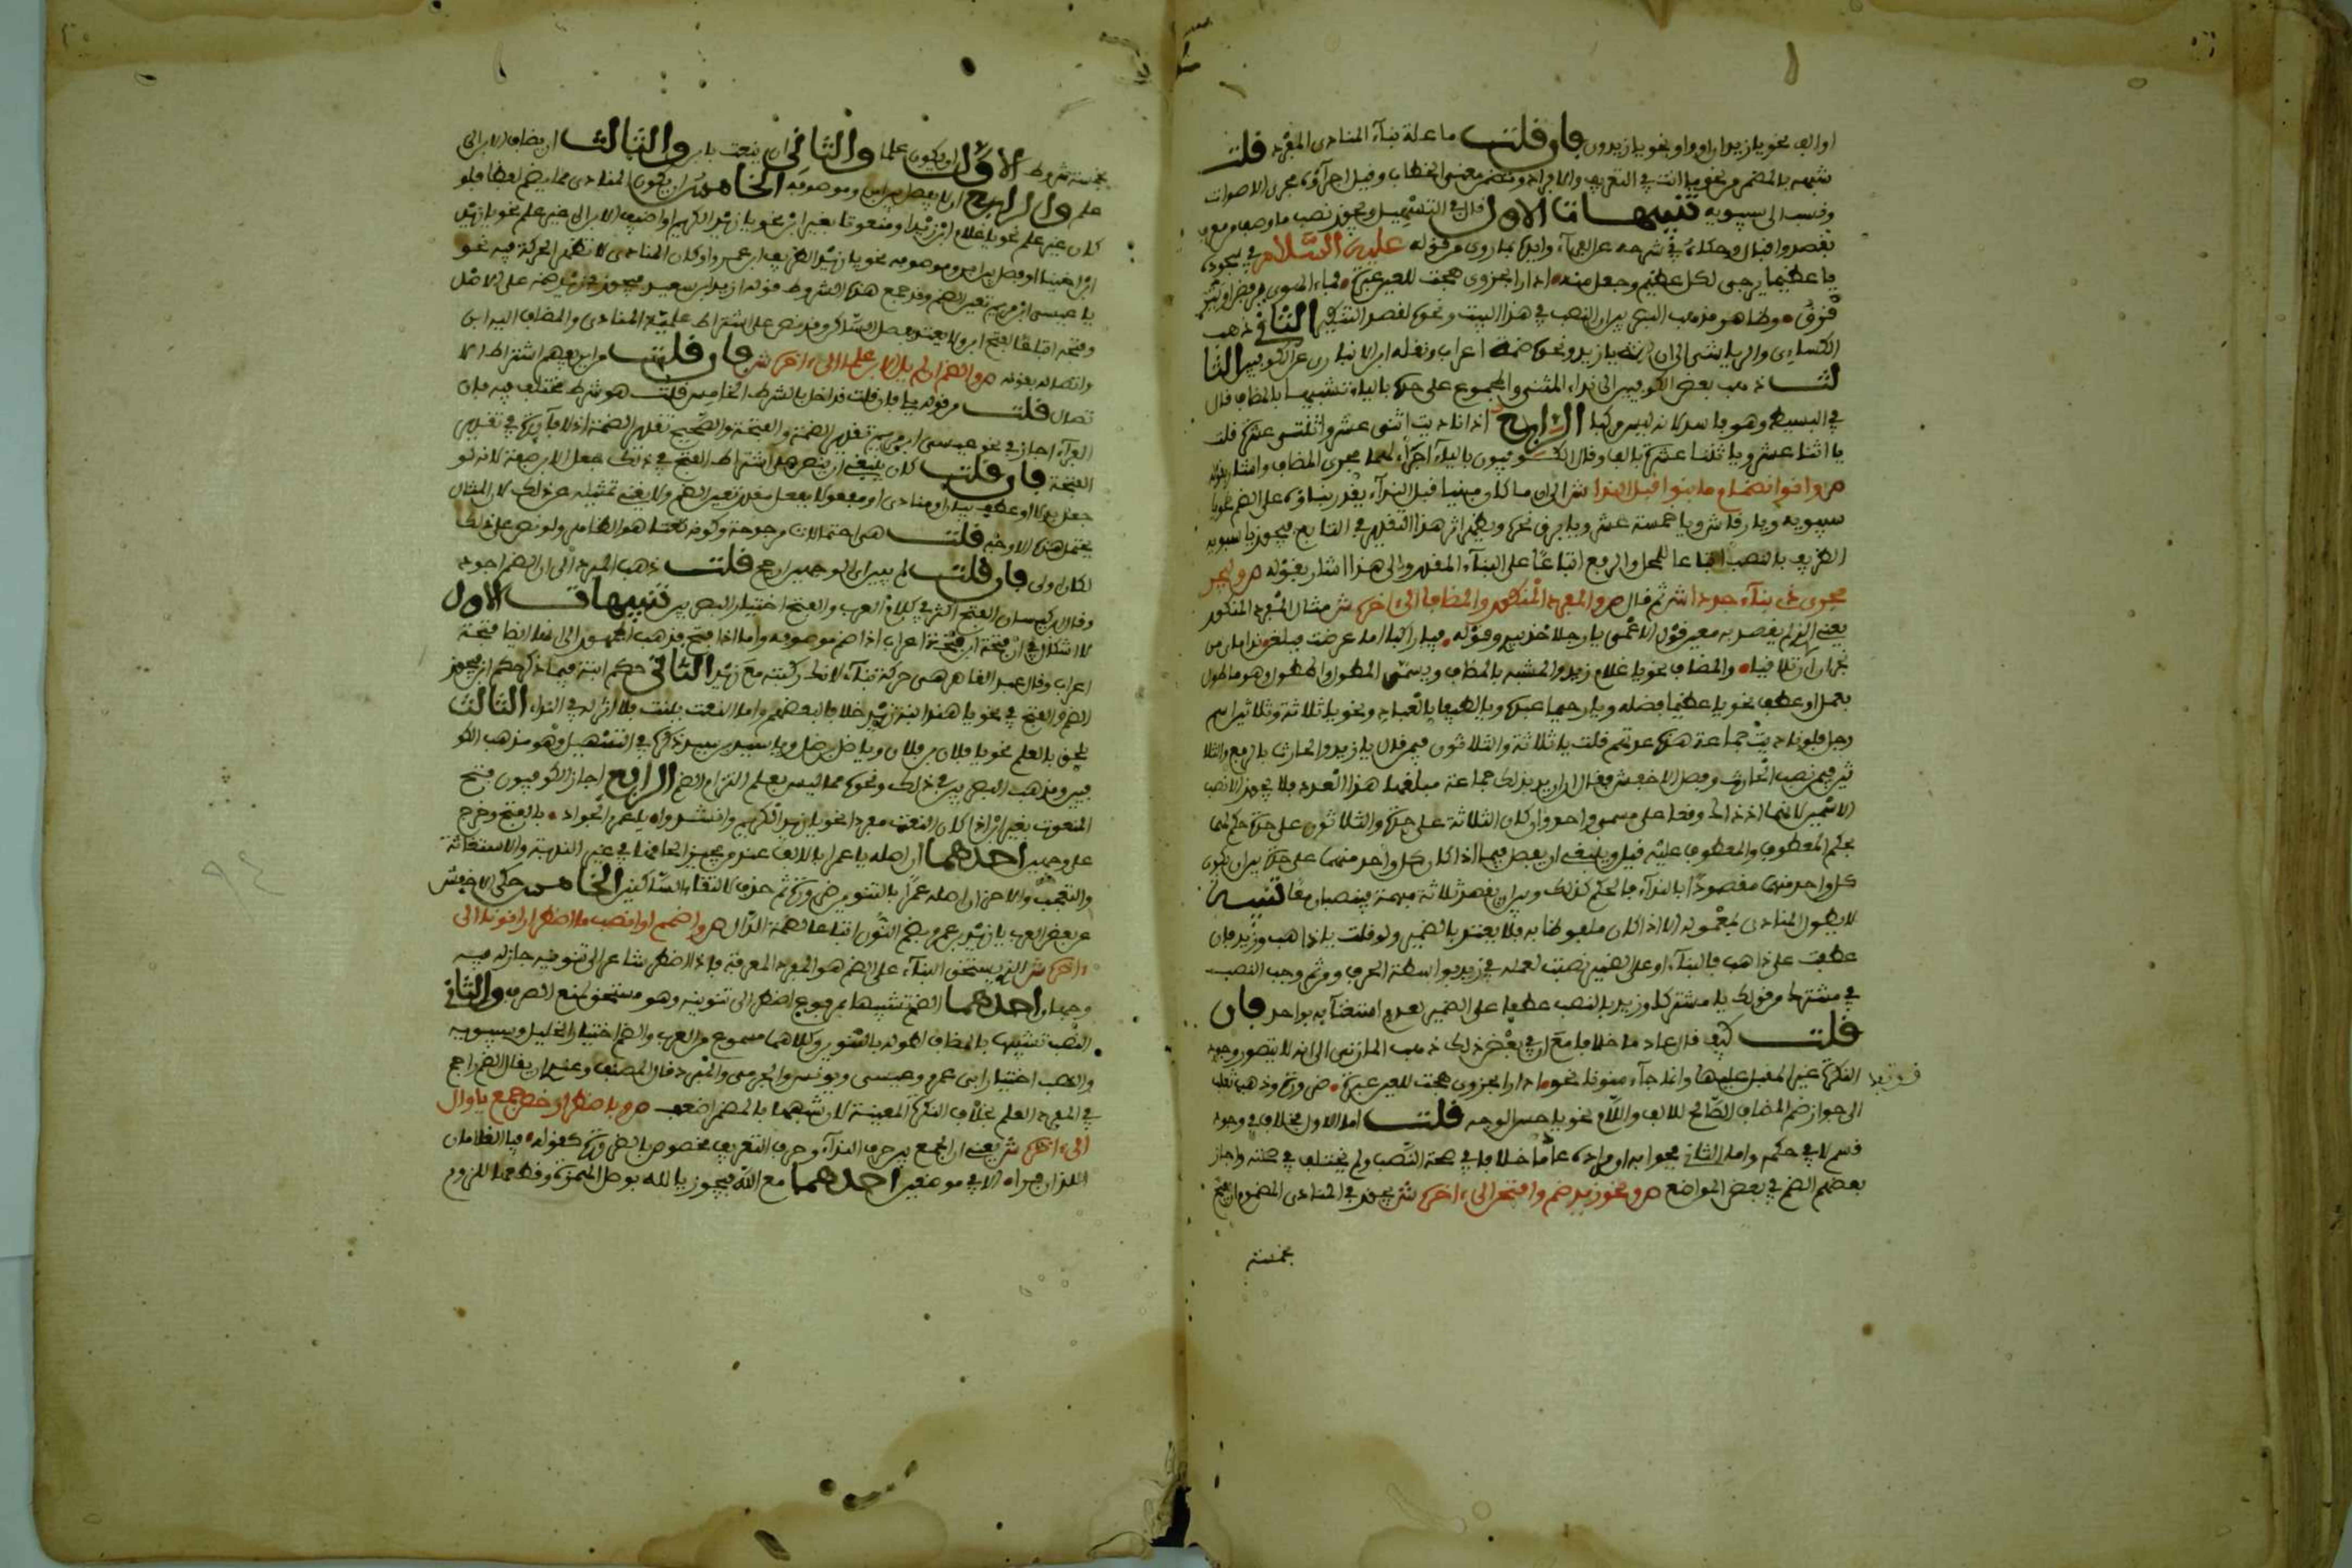 او الف نحو يا زيدان او واو نحو يا زيدون فان قلت ما علة بناء المنادى المفرد قلت
شبهه بالمضمر من نحو يا انت في التعريف والافراد وتضمن معنى الخطاب وقيل اجراؤه مجرى الاصوات
ونسب الى سيبويه تنبيهات الاول قال في التسهيل ويجوز نصب ما وصف من معرف
بقصد واقبال وحكاه في شرحه عن الفراء وايده بما روي من قوله عليه السلام في سجوده
يا عظيما يرجى لكل عظيم وجعل منه ادارا بحزوى هجت للعين عبرة فماء الهوى يرفض او يترقرق
وما هو مذهب البصريين ان النصب في هذا البيت ونحوه لقصد التنكير الثاني ذهب
الكسائي والرياشي الى ان ضمة يا زيد ونحوه ضمة اعراب ونقله ابن الانباري عن الكوفيين الثا
لث ذهب بعض الكوفيين الى نداء المثنى والمجموع على حده بالياء تشبيها بالمضاف قال
في البسيط وهو فاسد لانه ليس مركبا الرابع اذا ناديت اثنى عشر واثنتي عشرة قلت
يا اثنا عشر ويا اثنتا عشرة بالالف وقال الكوفيون بالياء اجراء لهما مجرى المضاف واشار بقوله
ص وانو انضمام ما بنوا قبل الندا ش الى ان ما كان مبنيا قبل النداء يقدر بناؤه على الضم نحو يا
سيبويه ويا رقاش ويا خمسة عشر ويا برق نحره ويظهر اثر هذا التقدير في التابع فيجوز يا سيبويه
الظريف بالنصب اتباعا للمحل والرفع اتباعا على البناء المقدر والى هذا اشار بقوله ص وليجر
مجرى ذي بناء جددا ش ثم قال ص والمفرد المنكور والمضافا الى اخره ش مثال المفرد المنكور
يعني الذي لم يقصد به معين قول الاعمى يا رجلا خذ بيدي وقوله فيا راكبا اما عرضت فبلغن نداماي من
نجران ان لا تلاقيا والمضاف نحو يا غلام زيد والمشبه بالمضاف ويسمى المطول والممطول وهو ما طول
بعمل او عطف نحو يا عظيما فضله ويا رحيما عبده ويا لطيفا بالعباد ونحو يا ثلاثة وثلاثين اسم
رجل فلو ناديت جماعة هذه عدتهم قلت يا ثلاثة والثلاثون فيمن قال يا زيد والحارث بالرفع والثلا
ثين فيمن نصب الحارث وفصل الاخفش فقال ان اريد بذلك جماعة مبلغها هذا العدد فلا يجوز الا نصب
الاسمين لانهما اذ ذاك وقعا على مسمى واحد وان كان الثلاثة على حدة والثلاثون على حدة حكم لهما
بحكم المعطوف والمعطوف عليه قيل وينبغي ان يفصل فيما اذا كان كل واحد منهما على حدة بين ان يكون
كل واحد منهما مقصودا بالنداء فالحكم كذلك وبين ان يقصد ثلاثة مبهمة فينصبان معا تنبيه
لا يطول المنادى بمعموله الا اذا كان ملفوظا به فلا يعتد بالضمير ولو قلت يا ذاهب وزيد فان
عطفت على ذاهب فالبناء او على الضمير نصبت لعمله في زيد بواسطة الحرف ومن ثم وجب النصب
في مشتركا من قولك يا مشتركا وزيد بالنصب عطفا على الضمير لعدم استغنائه بواحد فان
قلت كيف قال عادما خلافا مع ان في بعض ذلك ذهب المازني الى انه لا يتصور وجود
النكرة غير المقبل عليها وانما جاء منونا نحو ادارا بحزوى هجت للعين عبرة ضرورة وذهب ثعلب
الى جواز ضم المضاف الصالح للالف واللام نحو يا حسن الوجه قلت اما الاول فخلاف في وجود
قسم لا في حكمه واما الثاني فجوابه ان مراده عادما خلافا في صحة النصب ولم يختلف في صحته واجاز
بعضهم الضم في بعض المواضع ص ونحو زيد ضم وافتحن الى اخره ش يجوز في المنادى المضموم ان يفتح
بخمسة
بخمسة شروط الاول ان يكون علما والثاني ان ينعت بابن والثالث ان يضاف الابن الى
علم والرابع ان لا يفصل بين ابن وموصوفه الخامس ان يكون المنادى مما يضم لفظا فلو
كان غير علم نحو يا غلام ابن زيد او منعوتا بغير ابن نحو يا زيد الكريم او اضيف الابن الى غير علم نحو يا زيد
ابن اخينا او فصل بين ابن وموصوفه نحو يا زيد الظريف ابن عمرو او كان المنادى لا تظهر الحركة فيه نحو
يا عيسى ابن مريم تعين الضم وقد جمع هذه الشروط قوله ازيد بن سعيد فيجوز في زيد ضمه على الاصل
وفتحه اتباعا لفتح ابن ولا يعتد بفصل الساكن وقد نص على اشتراط علمية المنادى والمضاف اليه ابن
واتصاله بقوله ص والضم ان لم يل الابن علما الى اخره ش فان قلت من اين يفهم اشتراط الا
تصال قلت من قوله يل فان قلت قد اخل بالشرط الخامس قلت هو شرط مختلف فيه فان
الفراء اجاز في نحو عيسى ابن مريم تقدير الضمة والفتحة والصحيح تقدير الضمة اذ لا فائدة في تقدير
الفتحة فان قلت كان ينبغي ان ينص على اشتراط الفتح في ذلك جعل الابن صفة لانه لو
جعل بدلا او عطف بيان او منادى او مفعولا بفعل مقدر تعين الضم ولا يغني تمثيله عن ذلك لان المثال
يحتمل هذه الاوجه قلت هي احتمالات مرجوحة وكونه نعتا هو الظاهر ولو نص على ذلك
لكان اولى فان قلت لم يبين اي الوجهين ارجح قلت ذهب المبرد الى ان الضم اجود
وقال ابن كيسان الفتح اكثر في كلام العرب والفتح اختيار البصريين تنبيهات الاول
لا اشكال في ان فتحة ابن فتحة اعراب اذا ضم موصوفه واما اذا فتح فذهب الجمهور الى انها ايضا فتحة
اعراب وقال عبد القاهر هي حركة بناء لانك ركبته مع زيد الثاني حكم ابنة فيما ذكر حكم ابن فيجوز
الضم والفتح في نحو يا هند ابنة زيد خلافا لبعضهم واما النعت ببنت فلا اثر له في النداء الثالث
يلحق بالعلم نحو يا فلان بن فلان ويا ضل بن ضل ويا سيد بن سيد ذكره في التسهيل وهو مذهب الكو
فيين ومذهب البصريين في ذلك ونحوه مما ليس بعلم التزام الضم الرابع اجاز الكوفيون فتح
المنعوت بغير ابن اذا كان النعت مفردا نحو يا زيد الكريم وانشدوا يا عمر الجوادا بالفتح وخرج
على وجهين احدهما ان اصله يا عمرا بالالف عند من يجيز الحاقها في غير الندبة والاستغاثة
والتعجب والاخر ان اصله عمرا بالتنوين ضرورة ثم حذف لالتقاء الساكنين الخامس حكى الاخفش
عن بعض العرب يا زيد بن عمرو بضم النون اتباعا لضمة الدال ص واضمم او انصب ما اضطرارا نونا الى
اخره ش الذي يستحق البناء على الضم هو المفرد المعرفة فاذا اضطر شاعر الى تنوينه جاز له فيه
وجهان احدهما الضم تشبيها بمرفوع اضطر الى تنوينه وهو مستحق لمنع الصرف والثاني
النصب تشبيها بالمضاف لطوله بالتنوين وكلاهما مسموع من العرب والضم اختيار الخليل وسيبويه
والنصب اختيار ابي عمرو وعيسى ويونس والجرمي والمبرد قال المصنف وعندي ان يقال الضم راجح
في المفرد العلم بخلاف النكرة المعينة لان شبهها بالمضمر اضعف ص وباضطرار خص جمع يا وال
الى اخره ش يعني ان الجمع بين حرف النداء وحرف التعريف مخصوص بالضرورة كقوله فيا الغلامان
اللذان فرا الا في موضعين احدهما مع الله فيجوز يا الله بوصل الهمزة وقطعها للزوم